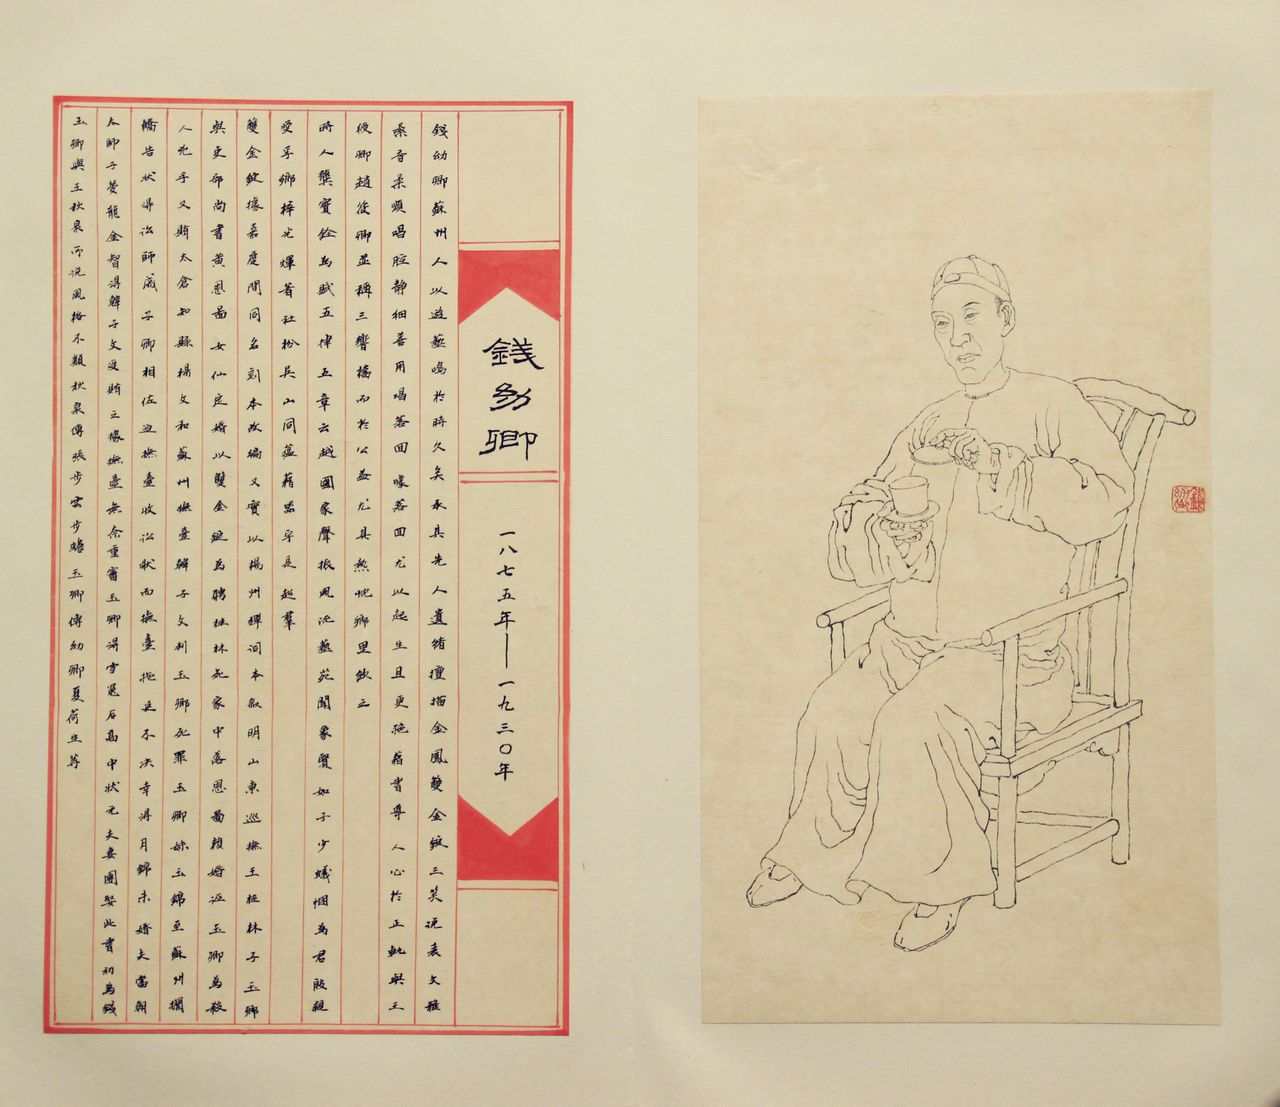 錢幼卿
一八七五年——一九三〇年
錢幼卿蘇州人以遊藝鳴於時久矣承其先人遺緒擅描金鳳雙金錠三笑說表文雅
嗓音柔順唱腔靜細善用唱善回噱善回尤以起生且更施藉書尊人心於正軌與王
綬卿趙筱卿並稱三響檔而於公益尤具熱忱鄉里欽之
時人龔寶銓為賦五律五章云越國家聲振風流藝苑聞象賢如子少蟻悃為君殷親
愛孚鄉梓光輝著社枌吳山同蘊藉器宇是超羣
雙金錠據嘉慶間同名刻本改編又實以揚州彈詞本敘明山東巡撫王桂林子玉卿
與吏部尚書黃恩昌女仙定婚以雙金錠為聘桂林死家中落恩昌賴婚逛玉卿為殺
人兇手又賄太倉知縣楊文和蘇州撫臺韓子文判玉卿死罪玉卿妹玉錦至蘇州攔
轎告狀得訟師戚子卿相佐迫撫臺收訟狀而撫臺拖延不決幸得月錦未婚夫當朝
太師子晏龍金智得韓子文受賄之據撫臺無奈重審玉卿得雪冤后高中狀元夫妻團娶此書初為錢
玉卿與王秋泉所說風格不類秋泉傳張步雲步蟾玉卿傳幼卿夏荷生等
錢幼卿